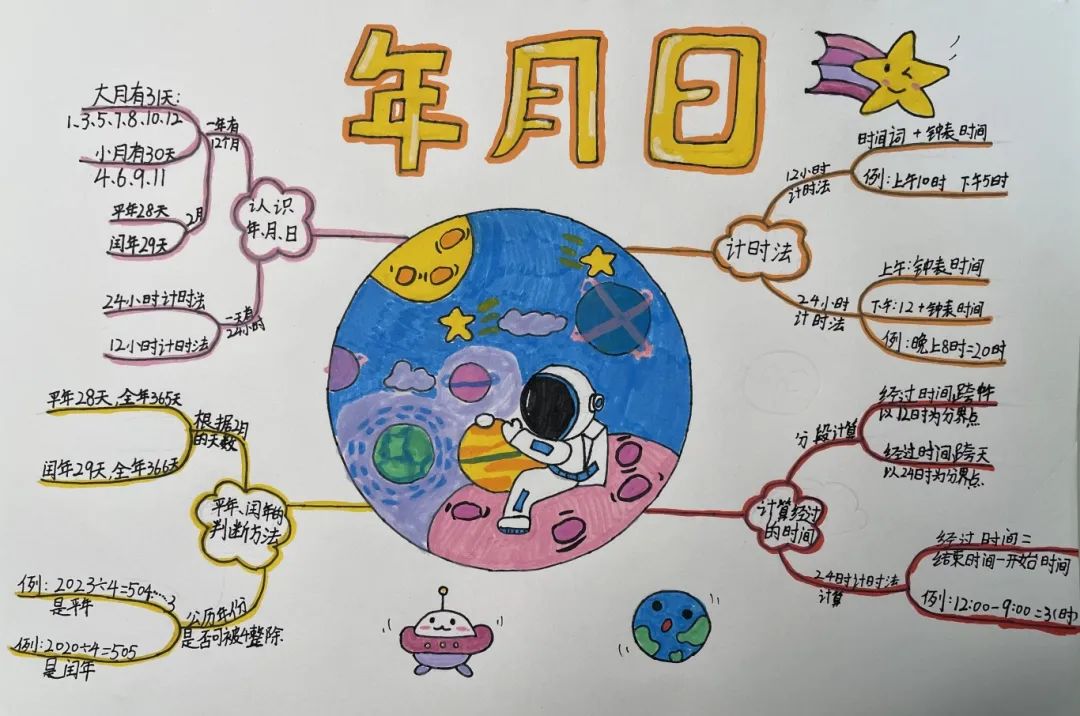 年月日
大月有31天:
1、3、5、7、8、10、12
小月有30天
4、6、9、11
平年28天
闰年29天
一年有
12个月
2月
认识
年、月、日
24小时计时法
12小时计时法
一天有
24小时
平年28天,全年365天
闰年29天,全年366天
根据2月
的天数
平年、闰年的
判断方法
例:2023÷4=504…3
是平年
例:2020÷4=505
是闰年
公历年份
是否可被4整除.
时间词 + 钟表时间
例:上午10时 下午5时
12小时
计时法
计时法
24小时
计时法
上午:钟表时间
下午:12+钟表时间
例:晚上8时=20时
经过时间跨午
以12时为分界点
经过时间跨天
以24时为分界点
分段计算
计算经过
的时间
24时计时法
计算
经过时间=
结束时间-开始时间
例:12:00-9:00=3(时)